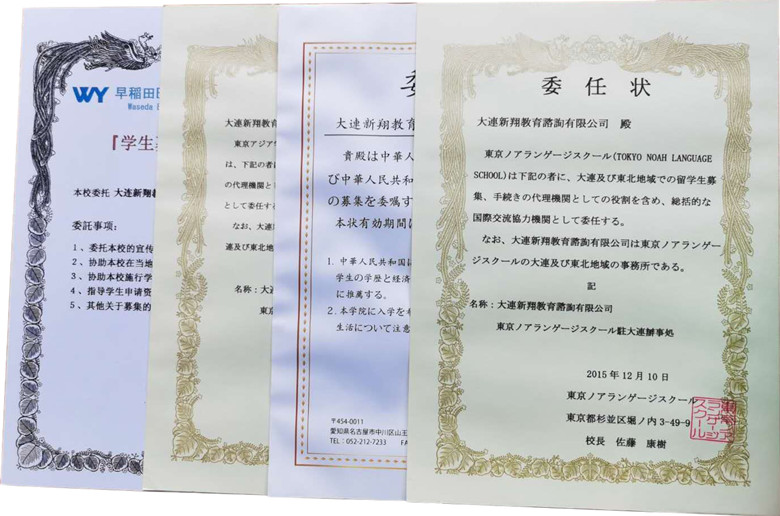 WY 早稲田
Waseda
『学生
本校委托 大连新翔教
委託事项：
1、委托本校的宣传
2、协助本校在当地
3、协助本校施行学
4、指导学生申请资
5、其他关于募集的
大連新翔教育
東京アジア
は、下記の者に
の代理機関と
として委任する
なお、大連
連及び東北地
名称：大連
東京
大連新翔教育
貴殿は中華人
び中華人民共和
の募集を委嘱す
本状有効期間は
1. 中華人民共和国に
学生の学歴と経済
に推薦する。
2. 本学院に入学を
生活について注意
〒454-0011
愛知県名古屋市中川区山王
TEL : 052-212-7233 FA
委任状
大連新翔教育諮詢有限公司 殿
東京ノアランゲージスクール(TOKYO NOAH LANGUAGE
SCHOOL)は下記の者に、大連及び東北地域での留学生募
集、手続きの代理機関としての役割を含め、総括的な
国際交流協力機関として委任する。
なお、大連新翔教育諮詢有限公司は東京ノアランゲー
ジスクールの大連及び東北地域の事務所である。
記
名称：大連新翔教育諮詢有限公司
東京ノアランゲージスクール駐大連辦事処
2015年12月10日
東京ノアランゲージスクール
東京都杉並区堀ノ内3-49-9
校長 佐藤 康樹
東京ノア
ランゲージ
スクール